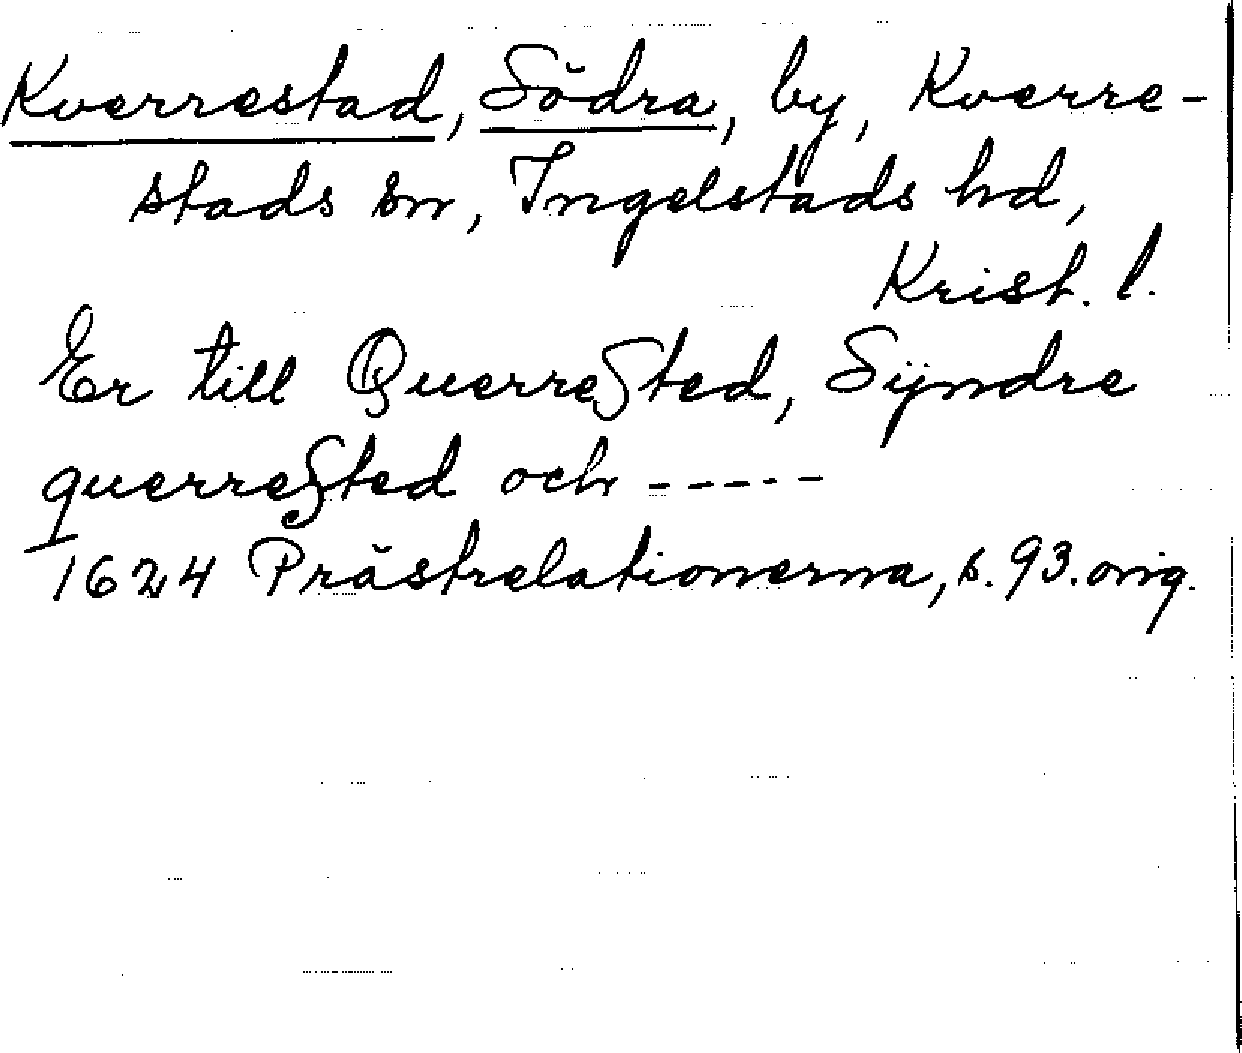 Kverrestad, Södra, by, Kverre-
stads sn, Ingelstads hd,
Krist. l.
Er till Querreſted, Sÿndre
querreſted och -----
1624 Prästrelationerna, s. 93. orig.